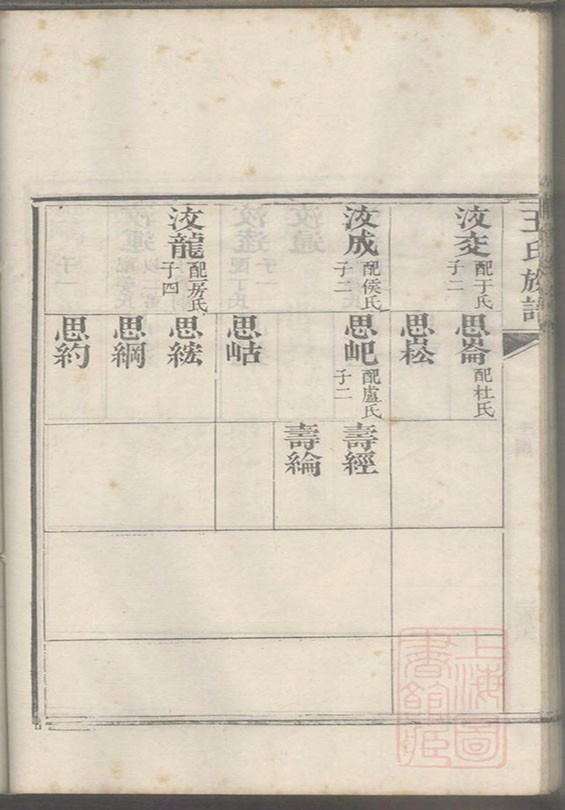 王氏族譜
汝交 配于氏 子二
汝成 配侯氏 子二
汝龍 配房氏 子四
思崙 配杜氏
思崧
思屺 配盧氏 子二
思岵
思紘
思綱
思約
壽經
壽綸
上海圖
書館藏